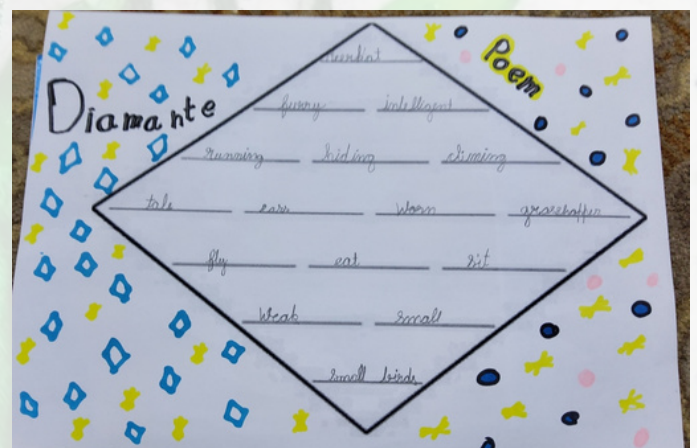 Diamante
Poem
furry intelligent
running hiding climing
tale ears worm grasshopper
fly eat sit
Weak small
small birds